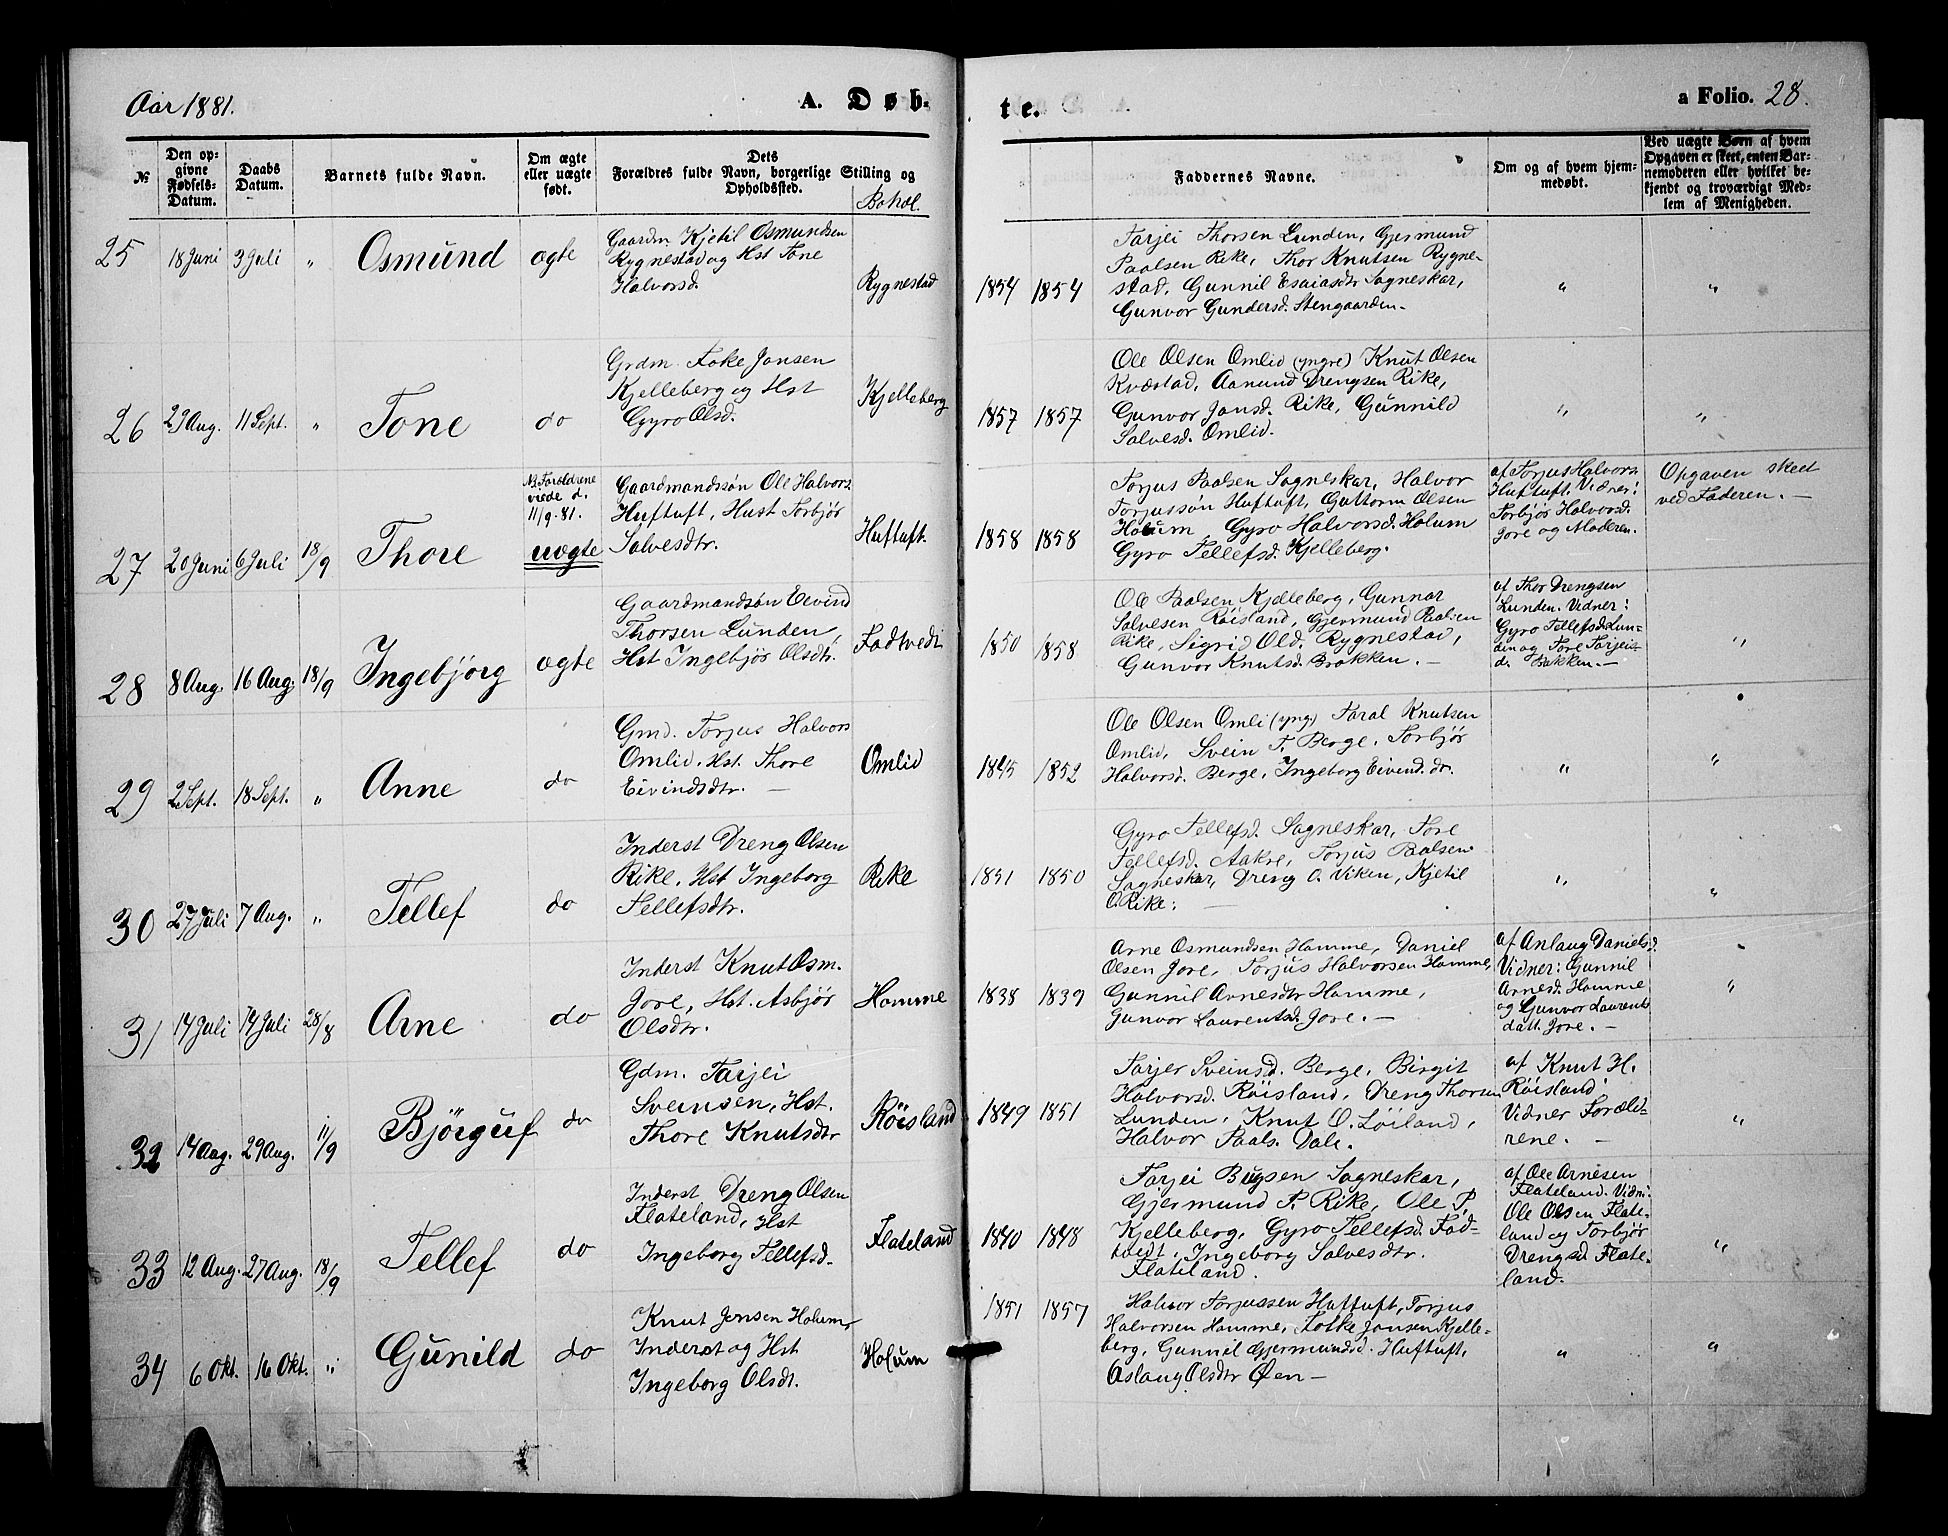 Aar 1881.
A. Døb-
te.
a Folio. 28.
№
Den op-
givne
Fødsels-
Datum.
Daabs
Datum.
Barnets fulde Navn.
Om ægte
eller uægte
født.
Dets
Forældres fulde Navn, borgerlige Stilling og
Opholdssted.
Bopæl.
Faddernes Navne.
Om og af hvem hjem-
medøbt.
Ved uægte Børn af hvem
Opgaven er skeet, enten Bar-
nemoderen eller hvilket be-
kjendt og troværdigt Med-
lem af Menigheden.
25 18 Juni 3 Juli " Osmund ægte
Gaardm. Kjetil Osmundsen
Rygnestad og Hst Tone
Halvorsd.
Rygnestad
1854 1854
Tarjei Thorsen Lunden, Gjermund
Paalsen Rike, Thor Knutsen Rygne-
stad, Gunnil Esaiasdtr Sagneskar,
Gunvor Gundersd. Stengaarden-
" "
26 29 Aug. 11 Sept. " Tone do
Grdm. Foke Jonsen
Kjelleberg og Hst
Gyro Olsd.
Kjelleberg
1857 1857
Ole Olsen Omlid (yngre) Knut Olsen
Kvæstad, Aanund Drengsen Rike,
Gunvor Jonsd. Rike, Gunnild
Salvesd. Omlid.
" "
27 20 Juni 6 Juli 18/9 Thore
NB. Forældrene
viede d.
11/9-81.
uægte
Gaardmandssøn Ole Halvors.
Huftuft, Hust Torbjør
Salvesdtr.
Huftuft.
1858 1858
Torjus Paalsen Sagneskar, Halvor
Torjussøn Huftuft, Guttorm Olsen
Holum, Gyro Halvorsd. Holum
Gyro Tellefsd. Kjelleberg.
af Torjus Halvors.
Huftuft. Vidner:
Torbjør Halvorsd.
Jore og Moderen.
Opgaven skeet
ved Faderen. -
28 8 Aug. 16 Aug. 18/9 Ingebjörg ægte
Gaardmandsøn Eivind
Thorsen Lunden,
Hst Ingebjör Olsdtr.
Fadtvedt
1850 1858
Ole Paalsen Kjelleberg, Gunnar
Salvesen Röisland, Gjermund Paalsen
Rike, Sigrid Old. Rygnestad,
Gunvor Knutsd. Brokken. -
af Thor Drengsen
Lunden. Vidner:
Gyro Tellefsd. Lun-
den og Tore Torjeis-
d. Bakken. -
"
29 2 Sept. 18 Sept. " Anne do
Gmd. Torjus Halvors
Omlid, Hst. Thore
Eivindsdtr. -
Omlid
1845 1852
Ole Olsen Omli (yng.) Taral Knutsen
Omlid, Svein T. Berge, Torbjör
Halvorsd. Berge, Ingeborg Eivind. dr.
" "
30 27 Juli 7 Aug. " Tellef do
Inderst Dreng Olsen
Rike, Hst Ingeborg
Tellefsdtr.
Rike
1851 1850
Gyro Tellefsd. Sagneskar, Tore
Tellefsd. Aakre, Torjus Paalsen
Sagneskar, Dreng O. Viken, Kjetil
O. Rike: -
" "
31 14 Juli 14 Juli 28/8 Arne do
Inderst Knut Osm.
Jore, Hst. Asbjör
Olsdtr.
Homme
1838 1839
Arne Osmundsen Homme, Daniel
Olsen Jore, Torjus Halvorsen Homme,
Gunnil Arnesdtr Homme,
Gunvor Laurentsd. Jore. -
af Anlaug Daniels.
Vidner: Gunnil
Arnesd. Homme
og Gunvor Laurents
datt. Jore. -
"
32 14 Aug. 29 Aug. 11/9 Björguf do
Gdm. Tarjei
Sveinsen, Hst.
Thore Knutsdtr
Röisland
1849 1851
Tarjer Sveinsd. Berge, Birgit
Halvorsd. Röisland, Dreng Thorsen
Lunden, Knut O. Löiland,
Halvor Paals. Dale.
af Knut H.
Röisland
Vidner Foræld-
rene. -
"
33 12 Aug. 27 Aug. 18/9 Tellef do
Inderst Dreng Olsen
Flateland, Hst
Ingeborg Tellefsd.
Flateland
1840 1848
Tarjei Bugsen Sagneskar,
Gjermund P. Rike, Ole P.
Kjelleberg, Gyro Tellefsd. Fad-
tvedt, Ingeborg Salvesdtr.
Flateland.
af Ole Arnesen
Flateland. Vidn:
Ole Olsen Flate-
land og Torbjör
Drengsd. Flate-
land.
"
34 6 Okt. 16 Okt. " Gunild do
Knut Jonsen Holum,
Inderst og Hst
Ingeborg Olsdt.
Holum
1851 1857
Halvor Torjussen Huftuft, Torjus
Halvorsen Homme, Folke Jonsen Kjelle-
berg, Gunnil Gjermundsd. Huftuft,
Aslaug Olsdtr Øen -
" "